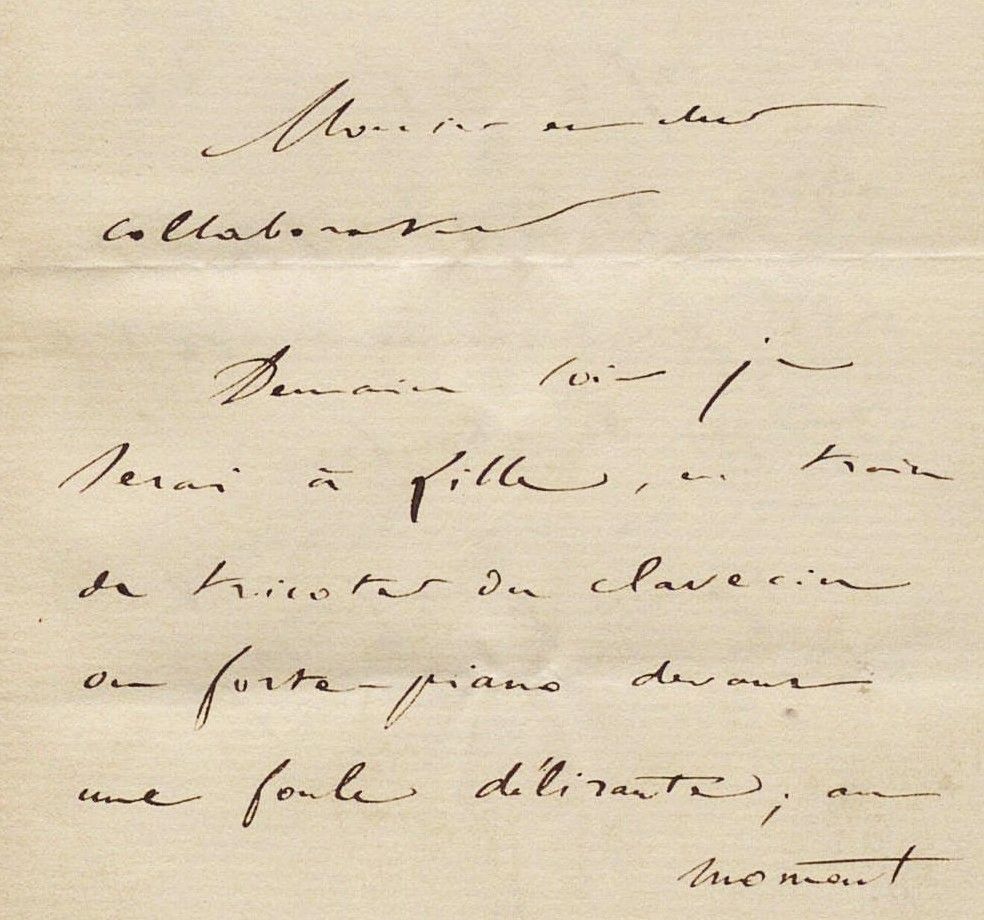 Monsieur et cher
collaborateur
Demain soir je
serai à Lille, en train
de tricoter du clavecin
ou forte-piano devant
une foule délirante ; au
moment